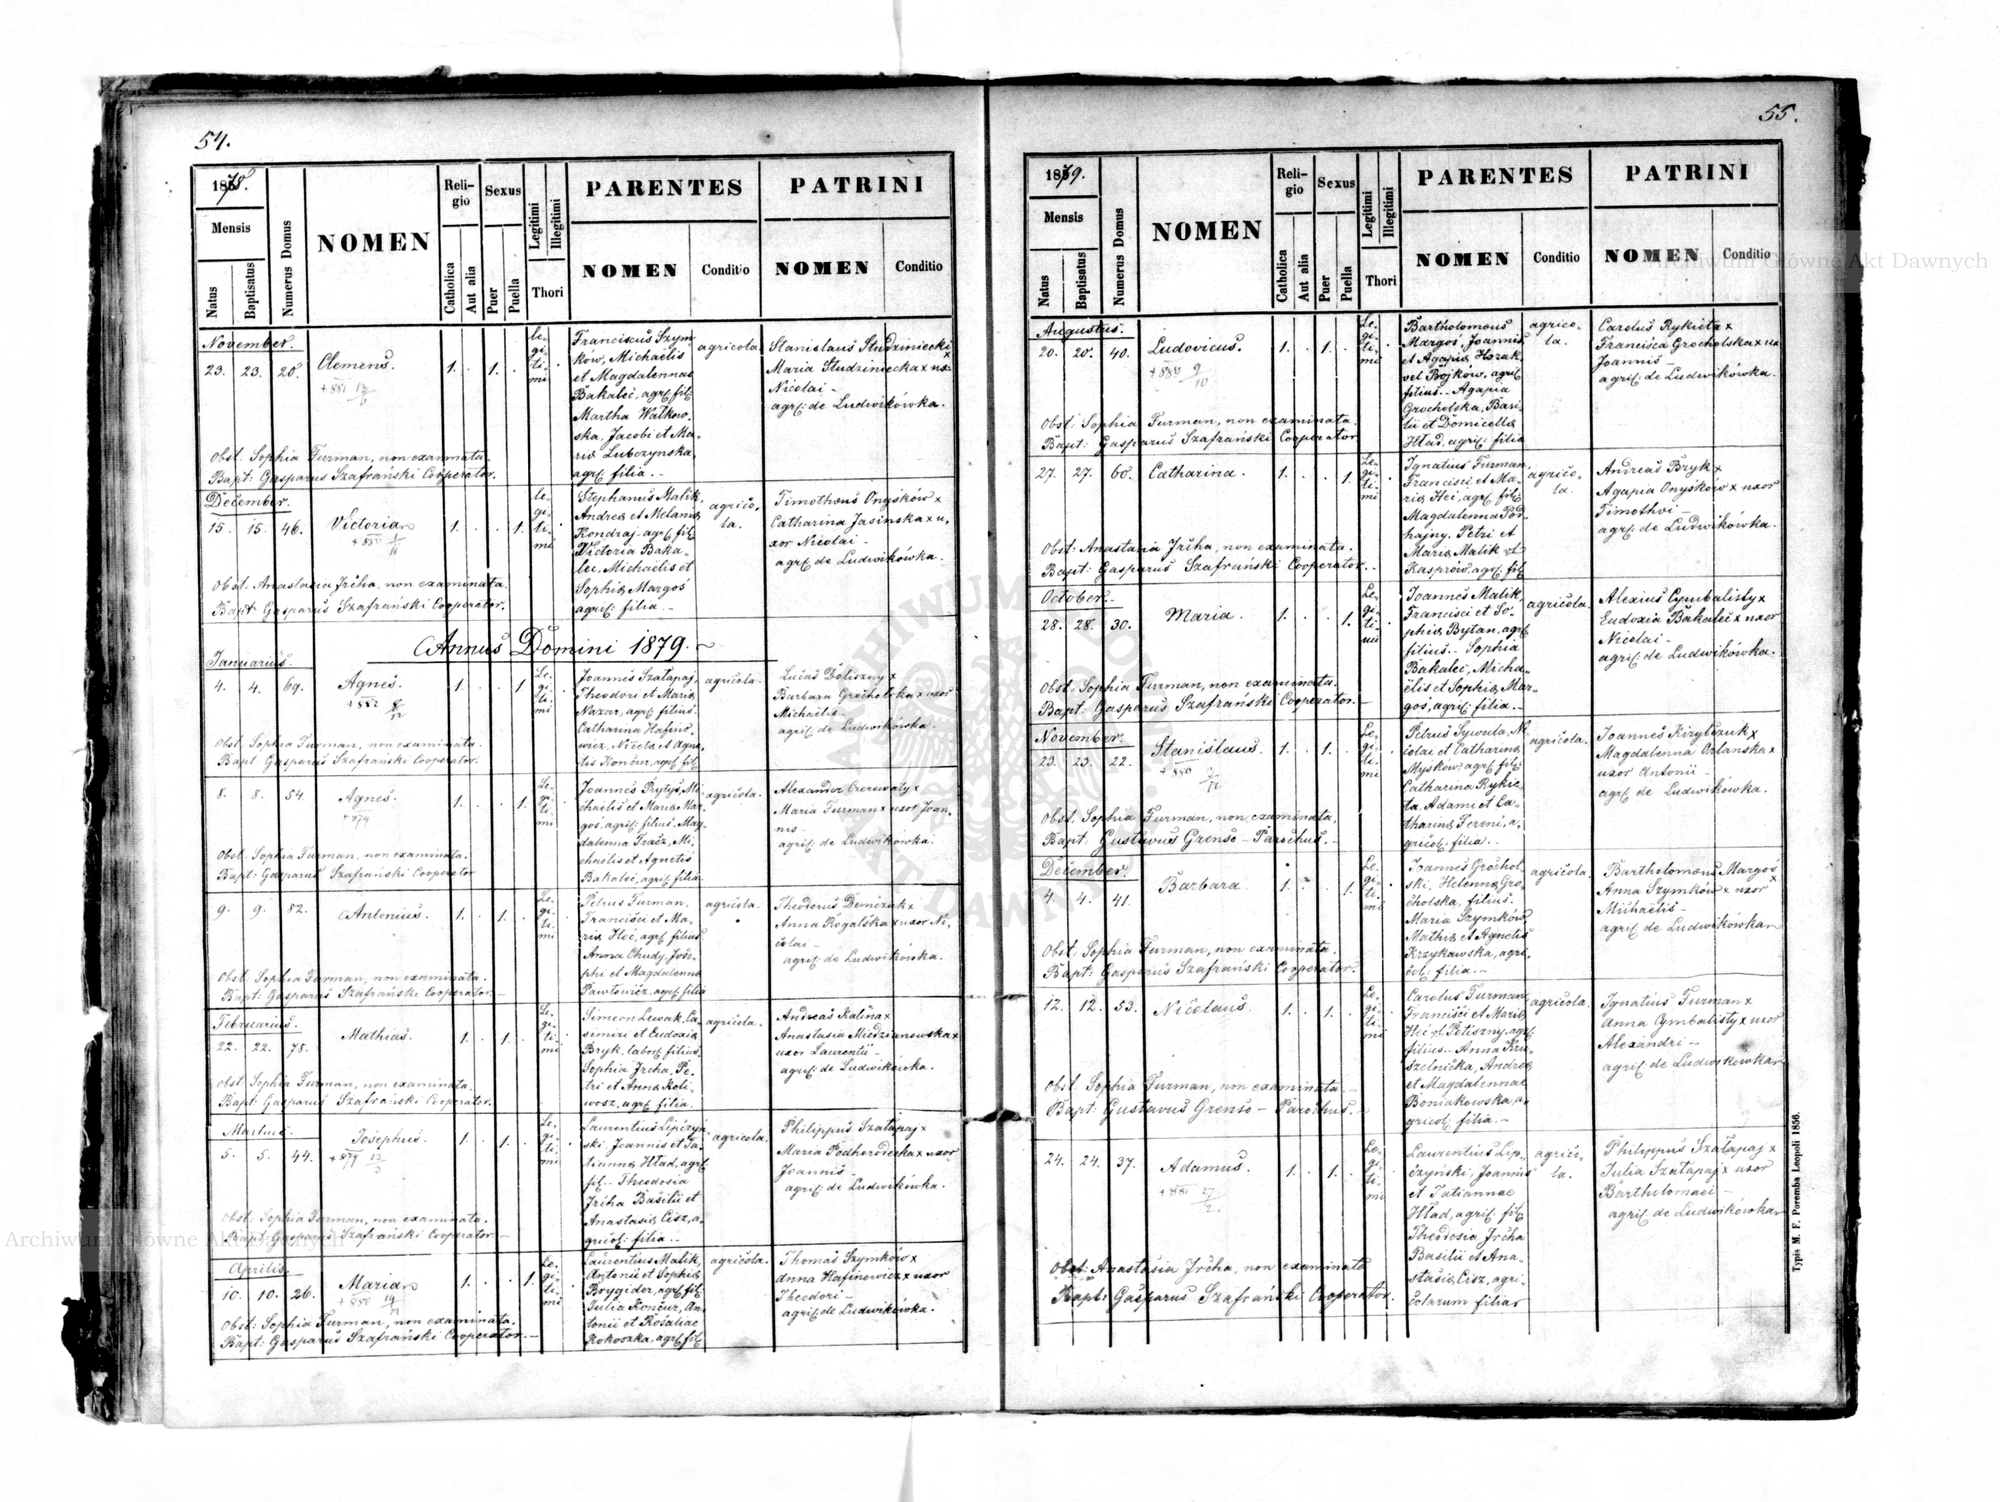 54.
1878.
Mensis
Natus
Baptisatus
Numerus Domus
NOMEN
Religio
Catholica
Aut alia
Sexus
Puer
Puella
Legitimi
Illegitimi
Thori
PARENTES
NOMEN
Conditio
PATRINI
NOMEN
Conditio
November.
23. 23. 20.
Clemens.
1. . 1. .
Le-
gi-
ti-
mi
Franciscus Szym-
ków, Michaëlis
et Magdalennae
Bakaleć, agrʃ: filʃ:
Martha Walkow-
ska, Jacobi et Ma-
riæ Lubczynska,
agrʃ: filia. -
agricola.
Stanislaus Studziniecki x
Maria Studziniecka x ux:
Nicolai -
agrʃ: de Ludwikówka.
Obst. Sophia Furman, non examinata.
Bapt: Gasparus Szafrański Cooperator.
December.
15. 15. 46.
Victoria
1. . . 1.
Le-
gi-
ti-
mi
Stephanus Malik,
Andreæ et Melaniæ
Kondraj - agrʃ: filʃ:
Victoria Baka-
lec, Michaëlis et
Sophiæ Margoś
agriʃ: filia. -
agrico-
la.
Timothæus Onyśków x
Catharina Jasinska x u-
xor Nicolai -
agrʃ: de Ludwikówka.
Obst. Anastasia Jrćha, non examinata.
Bapt: Gasparus Szafrański Cooperator.
Annus Domini 1879.
Januarius.
4. 4. 69.
Agnes.
1. . . 1
Le-
gi-
ti-
mi
Joannes Szatapaj,
Theodori et Mariæ
Nazar, agrʃ: filius.
Catharina Hafino-
wicz, Nicolai et Agne-
tis Kończur, agrʃ: fil:
agricola.
Lucas Doliszny x
Barbara Grocholska x uxor
Michaëlis -
agriʃ: de Ludwikówka.
Obst. Sophia Furman, non examinata.
Bapt. Gasparus Szafrański Cooperator.
8. 8. 54.
Agnes.
+ 879
1. . . 1.
Le-
gi-
ti-
mi
Joannes Prytys, Mi-
chaëlis et Mariæ Mar-
goś, agriʃ: filius. Mag-
dalenna Tracz, Mi-
chaëlis et Agnetis
Bakaleć, agriʃ: filia.
agricola.
Alexander Czerewaty x
Maria Furman x uxor Joan-
nis -
agriʃ: de Ludwikówka.
Obst: Sophia Furman, non examinata.
Bapt: Gasparus Szafrański Cooperator
9. 9. 82.
Antonius.
1. . 1. .
Le-
gi-
ti-
mi
Petrus Furman,
Francisci et Ma-
riæ Heć, agrʃ: filius
Anna Chudy, Jose-
phi et Magdalenna
Pawłowicz, agrʃ: filia
agricola.
Theodorus Demczuk x
Anna Rogalska x uxor Ni-
colai -
agriʃ: de Ludwikówka.
Obst: Sophia Furman, non examinata.
Bapt: Gasparus Szafrański Cooperator.
Februarius.
22. 22. 78.
Mathias.
1. . 1. .
Le-
gi-
ti-
mi
Simeon Lewak, Ca-
simiri et Eudoxiæ
Bryk, laborʃ: filius.
Sophia Jrcha, Pe-
tri et Annæ Koli-
wosz, agrʃ: filia.
agricola.
Andreas Kalina x
Anastasia Miedzianowska x
uxor Laurentii -
agriʃ: de Ludwikówka.
Obst: Sophia Furman, non examinata.
Bapt: Gasparus Szafrański Cooperator.
Martius.
5. 5. 44.
Josephus.
1. . 1. .
Le-
gi-
ti-
mi
Laurentius Lipczyn-
ski, Joannis et Ta-
tiannæ Hład, agrʃ:
fil: - Theodosia
Jrćha Basilii et
Anastasiæ Cisz, a-
gricol: filia. -
agricola.
Philippus Szatapaj x
Maria Podhorodecka x uxor
Joannis -
agriʃ: de Ludwikówka.
Obst: Sophia Furman, non examinata.
Bapt: Gasparus Szafrański Cooperator. -
Aprilis.
10. 10. 26.
Maria
1. . . 1.
Le-
gi-
ti-
mi
Laurentius Malik,
Antonii et Sophiæ
Brygider, agrʃ: filʃ:
Julia Kończur, An-
tonii et Rosaliae
Kokoszka, agrʃ: filʃ:
agricola.
Thomas Szymków x
Anna Hafinowicz x uxor
Theodori -
agriʃ: de Ludwikówka.
Obst: Sophia Furman, non examinata.
Bapt: Gasparus Szafrański Cooperator. -
55.
1879.
Mensis
Natus
Baptisatus
Numerus Domus
NOMEN
Religio
Catholica
Aut alia
Sexus
Puer
Puella
Legitimi
Illegitimi
Thori
PARENTES
NOMEN
Conditio
PATRINI
NOMEN
Conditio
Augustus.
20. 20. 40.
Ludovicus.
1. . 1. .
Le-
gi-
ti-
mi
Bartholomeus
Margoś, Joannis
et Agapiæ Hozak
vel Bojków, agriʃ:
filius. - Agapia
Grocholska, Basi-
lii et Domicellæ
Hład, agriʃ: filia
agrico-
la.
Carolus Rykieta x
Francisca Grocholska x ux
Joannis -
agriʃ: de Ludwikówka.
Obst: Sophia Furman, non examinata.
Bapt: Gasparus Szafrański Cooperator
27. 27. 60.
Catharina.
1. . . 1.
Le-
gi-
ti-
mi
Ignatius Furman,
Francisci et Ma-
riæ Heć, agrʃ: filʃ:
Magdalenna Pod-
hajny, Petri et
Mariæ Malik vel
Kasprów, agrʃ: filʃ
agrico-
la.
Andreas Bryk x
Agapia Onyśków x uxor
Timothei -
agrʃ: de Ludwikówka.
Obst: Anastasia Jrćha, non examinata.
Bapt: Gasparus Szafrański Cooperator. -
October.
28. 28. 30.
Maria.
1. . . 1.
Le-
gi-
ti-
mi
Joannes Malik,
Francisci et So-
phiæ Bytan, agrʃ:
filius. - Sophia
Bakaleć, Micha-
ëlis et Sophiæ Mar-
gos, agriʃ: filia. -
agricola.
Alexius Cymbalisty x
Eudoxia Bakaleć x uxor
Nicolai -
agriʃ: de Ludwikówka.
Obst: Sophia Furman, non examinata.
Bapt: Gasparus Szafrański Cooperator. -
November.
23. 23. 22.
Stanislaus.
1. . 1. .
Le-
gi-
ti-
mi
Petrus Sywula, Ni-
colai et Catharinæ
Myśków, agrʃ: filʃ:
Catharina Rykie-
ta, Adami et Ca-
tharinæ Ferenc, a-
gricol: filia. -
agricola.
Joannes Kirylczuk x
Magdalenna Orlanska x
uxor Antonii -
agriʃ: de Ludwikówka.
Obst: Sophia Furman, non examinata,
Bapt: Gustavus Grenso - Parochus. -
December.
4. 4. 41.
Barbara.
1. . . 1.
Le-
gi-
ti-
mi
Joannes Grochol-
ski, Helennæ Gro-
cholska, filius.
Maria Szymków
Mathiæ et Agnetis
Krzykawska, agri-
col: filia. -
agricola.
Bartholomæus Margoś x
Anna Szymków x uxor
Michaëlis -
agriʃ: de Ludwikówka
Obst: Sophia Furman, non examinata.
Bapt: Gasparus Szafrański Cooperator.
12. 12. 53.
Nicolaus.
1. . 1. .
Le-
gi-
ti-
mi
Carolus Furman,
Francisci et Mariæ
Heć vel Petiszny, agrʃ:
filius. - Anna Kru-
szelnicka, Andreæ
et Magdalennae
Boniakowska, a-
gricol: filia. -
agricola.
Ignatius Furman x
Anna Cymbalisty x uxor
Alexandri -
agriʃ: de Ludwikowka
Obst. Sophia Furman, non examinata. -
Bapt: Gustavus Grenso - Parochus. -
24. 24. 37.
Adamus.
1. . 1. .
Le-
gi-
ti-
mi
Laurentius Lip-
czynski, Joannis
et Tatiannae
Hład, agriʃ: filʃ:
Theodosia Jrćha
Basilii et Ana-
stasiæ Cisz, agri-
colarum filia
agrico-
la.
Philippus Szatapaj x
Julia Szatapaj x uxor
Bartholomaei -
agriʃ: de Ludwikówka
Obst: Anastasia Jrćha, non examinata
Bapt: Gasparus Szafrański Cooperator.
Typis M. F. Poremba Leopoli 1856.
Archiwum Główne Akt Dawnych
Archiwum Główne Akt Dawnych